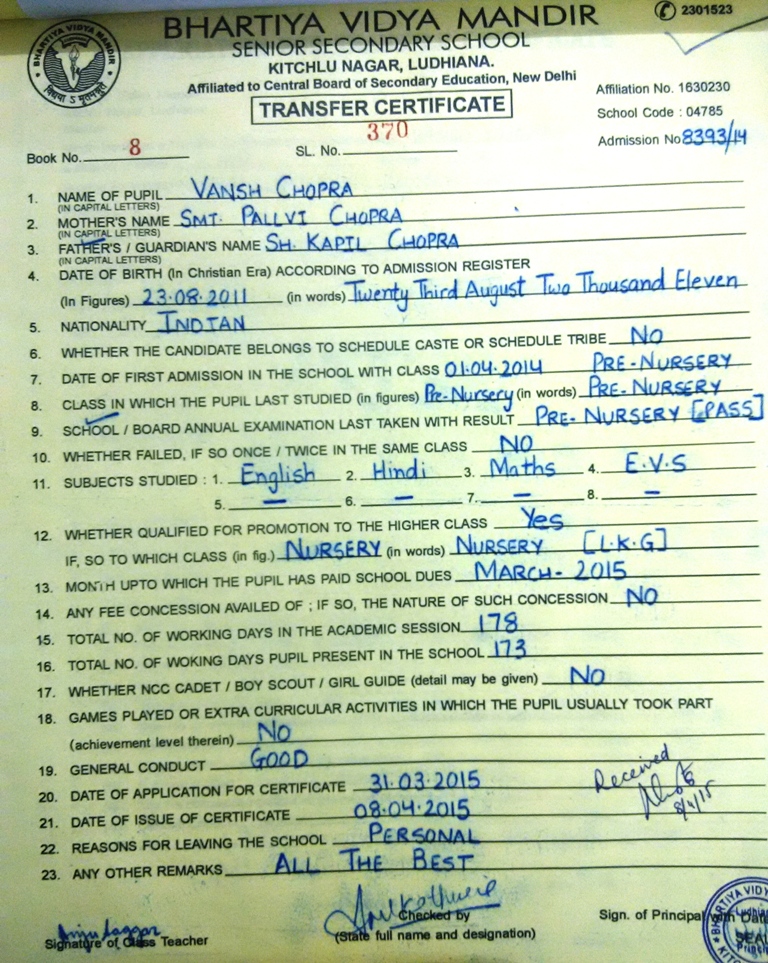 BHARTIYA VIDYA MANDIR
2301523
SENIOR SECONDARY SCHOOL
KITCHLU NAGAR, LUDHIANA.
Affiliated to Central Board of Secondary Education, New Delhi
Affiliation No. 1630230
TRANSFER CERTIFICATE
School Code : 04785
Admission No 8393/14
Book No. 8 SL. No. 370
1. NAME OF PUPIL VANSH CHOPRA
(IN CAPITAL LETTERS)
2. MOTHER'S NAME SMT. PALLVI CHOPRA
(IN CAPITAL LETTERS)
3. FATHER'S / GUARDIAN'S NAME SH. KAPIL CHOPRA
(IN CAPITAL LETTERS)
4. DATE OF BIRTH (In Christian Era) ACCORDING TO ADMISSION REGISTER
(In Figures) 23.08.2011 (in words) Twenty Third August Two Thousand Eleven
5. NATIONALITY INDIAN
6. WHETHER THE CANDIDATE BELONGS TO SCHEDULE CASTE OR SCHEDULE TRIBE NO
7. DATE OF FIRST ADMISSION IN THE SCHOOL WITH CLASS 01.04.2014 PRE-NURSERY
8. CLASS IN WHICH THE PUPIL LAST STUDIED (in figures) Pre-Nursery (in words) PRE-NURSERY
9. SCHOOL / BOARD ANNUAL EXAMINATION LAST TAKEN WITH RESULT PRE-NURSERY [PASS]
10. WHETHER FAILED, IF SO ONCE / TWICE IN THE SAME CLASS NO
11. SUBJECTS STUDIED : 1. English 2. Hindi 3. Maths 4. E.V.S
5. — 6. — 7. — 8. —
12. WHETHER QUALIFIED FOR PROMOTION TO THE HIGHER CLASS Yes
IF, SO TO WHICH CLASS (in fig.) NURSERY (in words) NURSERY [L.K.G]
13. MONTH UPTO WHICH THE PUPIL HAS PAID SCHOOL DUES MARCH-2015
14. ANY FEE CONCESSION AVAILED OF ; IF SO, THE NATURE OF SUCH CONCESSION NO
15. TOTAL NO. OF WORKING DAYS IN THE ACADEMIC SESSION 178
16. TOTAL NO. OF WOKING DAYS PUPIL PRESENT IN THE SCHOOL 173
17. WHETHER NCC CADET / BOY SCOUT / GIRL GUIDE (detail may be given) NO
18. GAMES PLAYED OR EXTRA CURRICULAR ACTIVITIES IN WHICH THE PUPIL USUALLY TOOK PART
(achievement level therein) NO
19. GENERAL CONDUCT GOOD
20. DATE OF APPLICATION FOR CERTIFICATE 31.03.2015
21. DATE OF ISSUE OF CERTIFICATE 08.04.2015
22. REASONS FOR LEAVING THE SCHOOL PERSONAL
23. ANY OTHER REMARKS ALL THE BEST
Received
8/4/15
Signature of Class Teacher
Checked by
(State full name and designation)
Sign. of Principal with Date
SEAL